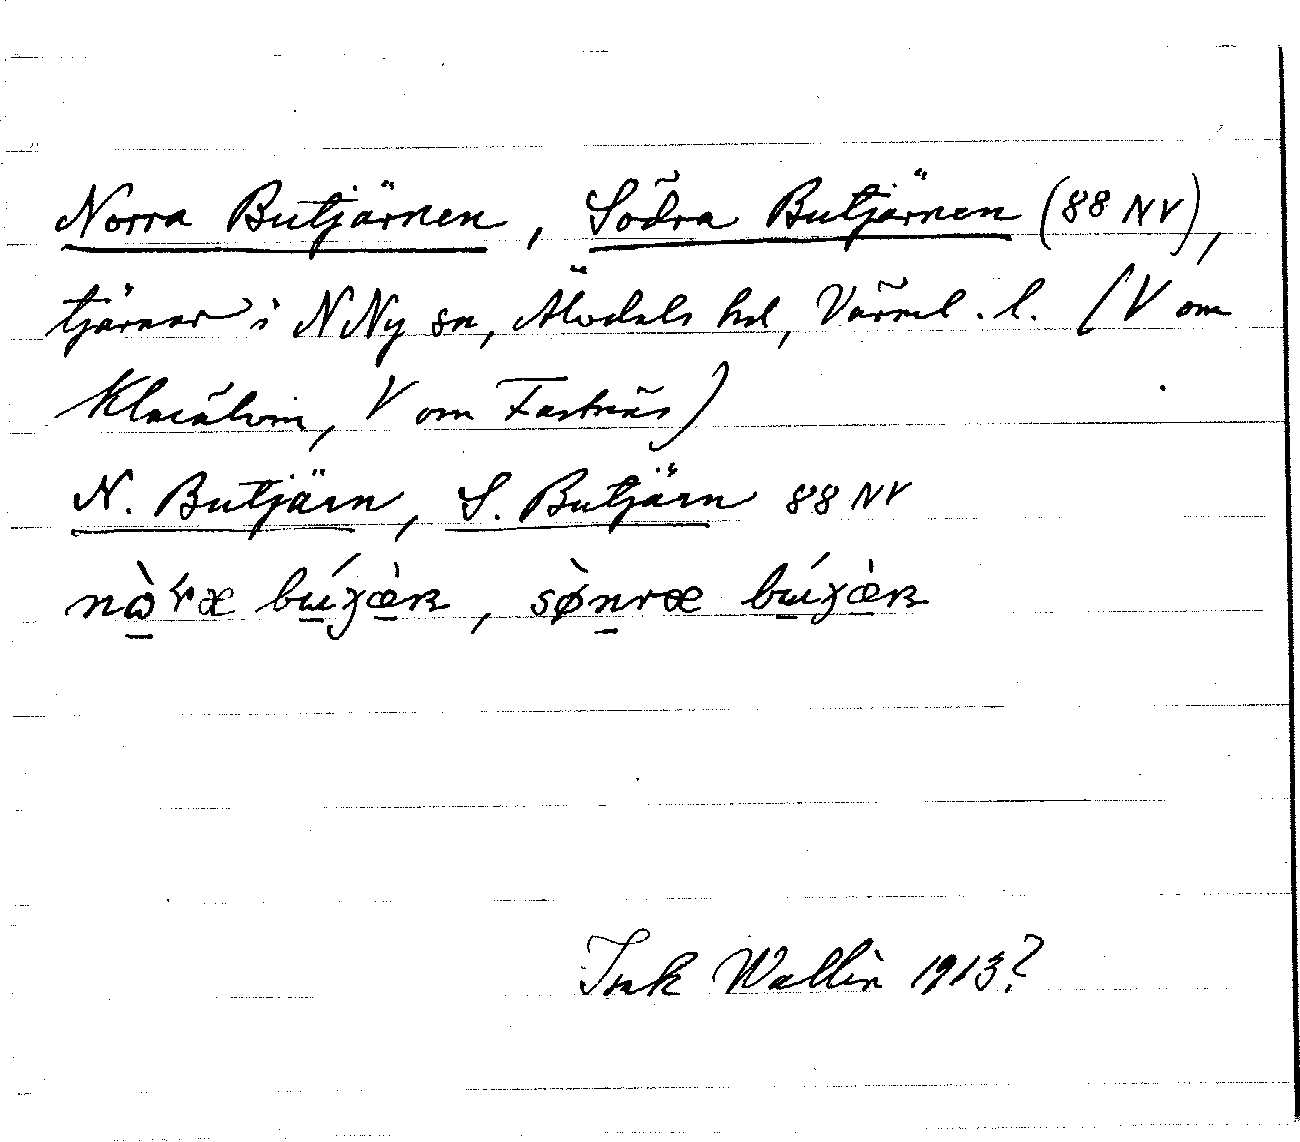 Norra Butjärnen, Södra Butjärnen (88 NV),
tjärnar i N Ny sn, Älvdals hd, Värml. l. (V om
Klarälven, V om Fastnäs)
N. Butjärn, S. Butjärn 88 NV
nɷ̀ræ bɯ́ʒæ̀ʀ, sø̀nræ bɯ́ʒæ̀ʀ
Isak Wallin 1913?